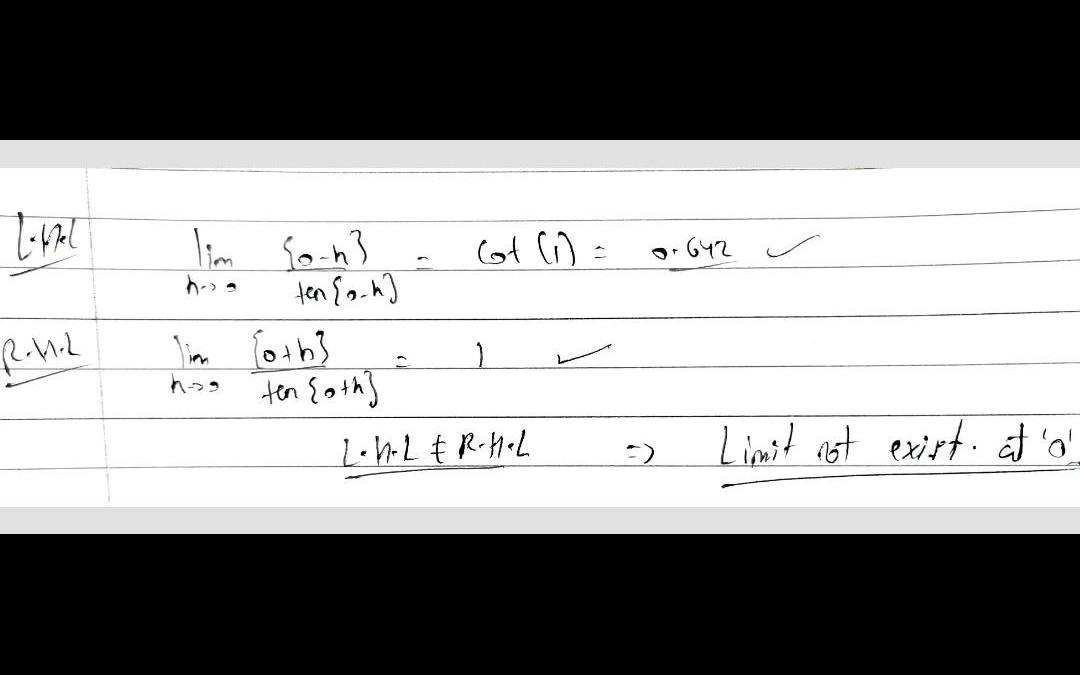 L.H.L lim h->0 {0-h} / tan{0-h} = Cot (1) = 0.642 ✓
R.H.L lim h->0 {0+h} / tan{0+h} = 1 ✓
L.H.L ≠ R.H.L => Limit not exist. at '0'